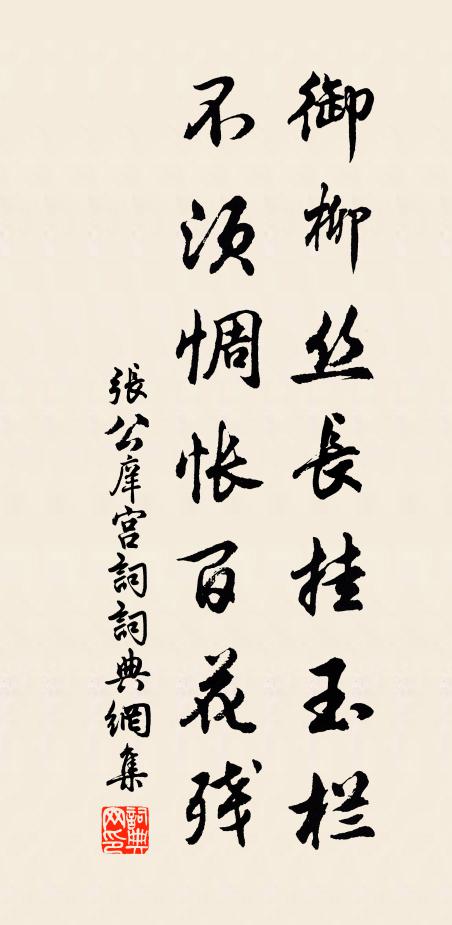 御柳丝長挂玉栏
不须惆怅百花残
張公庠宫詞詞典網集
詞典网印